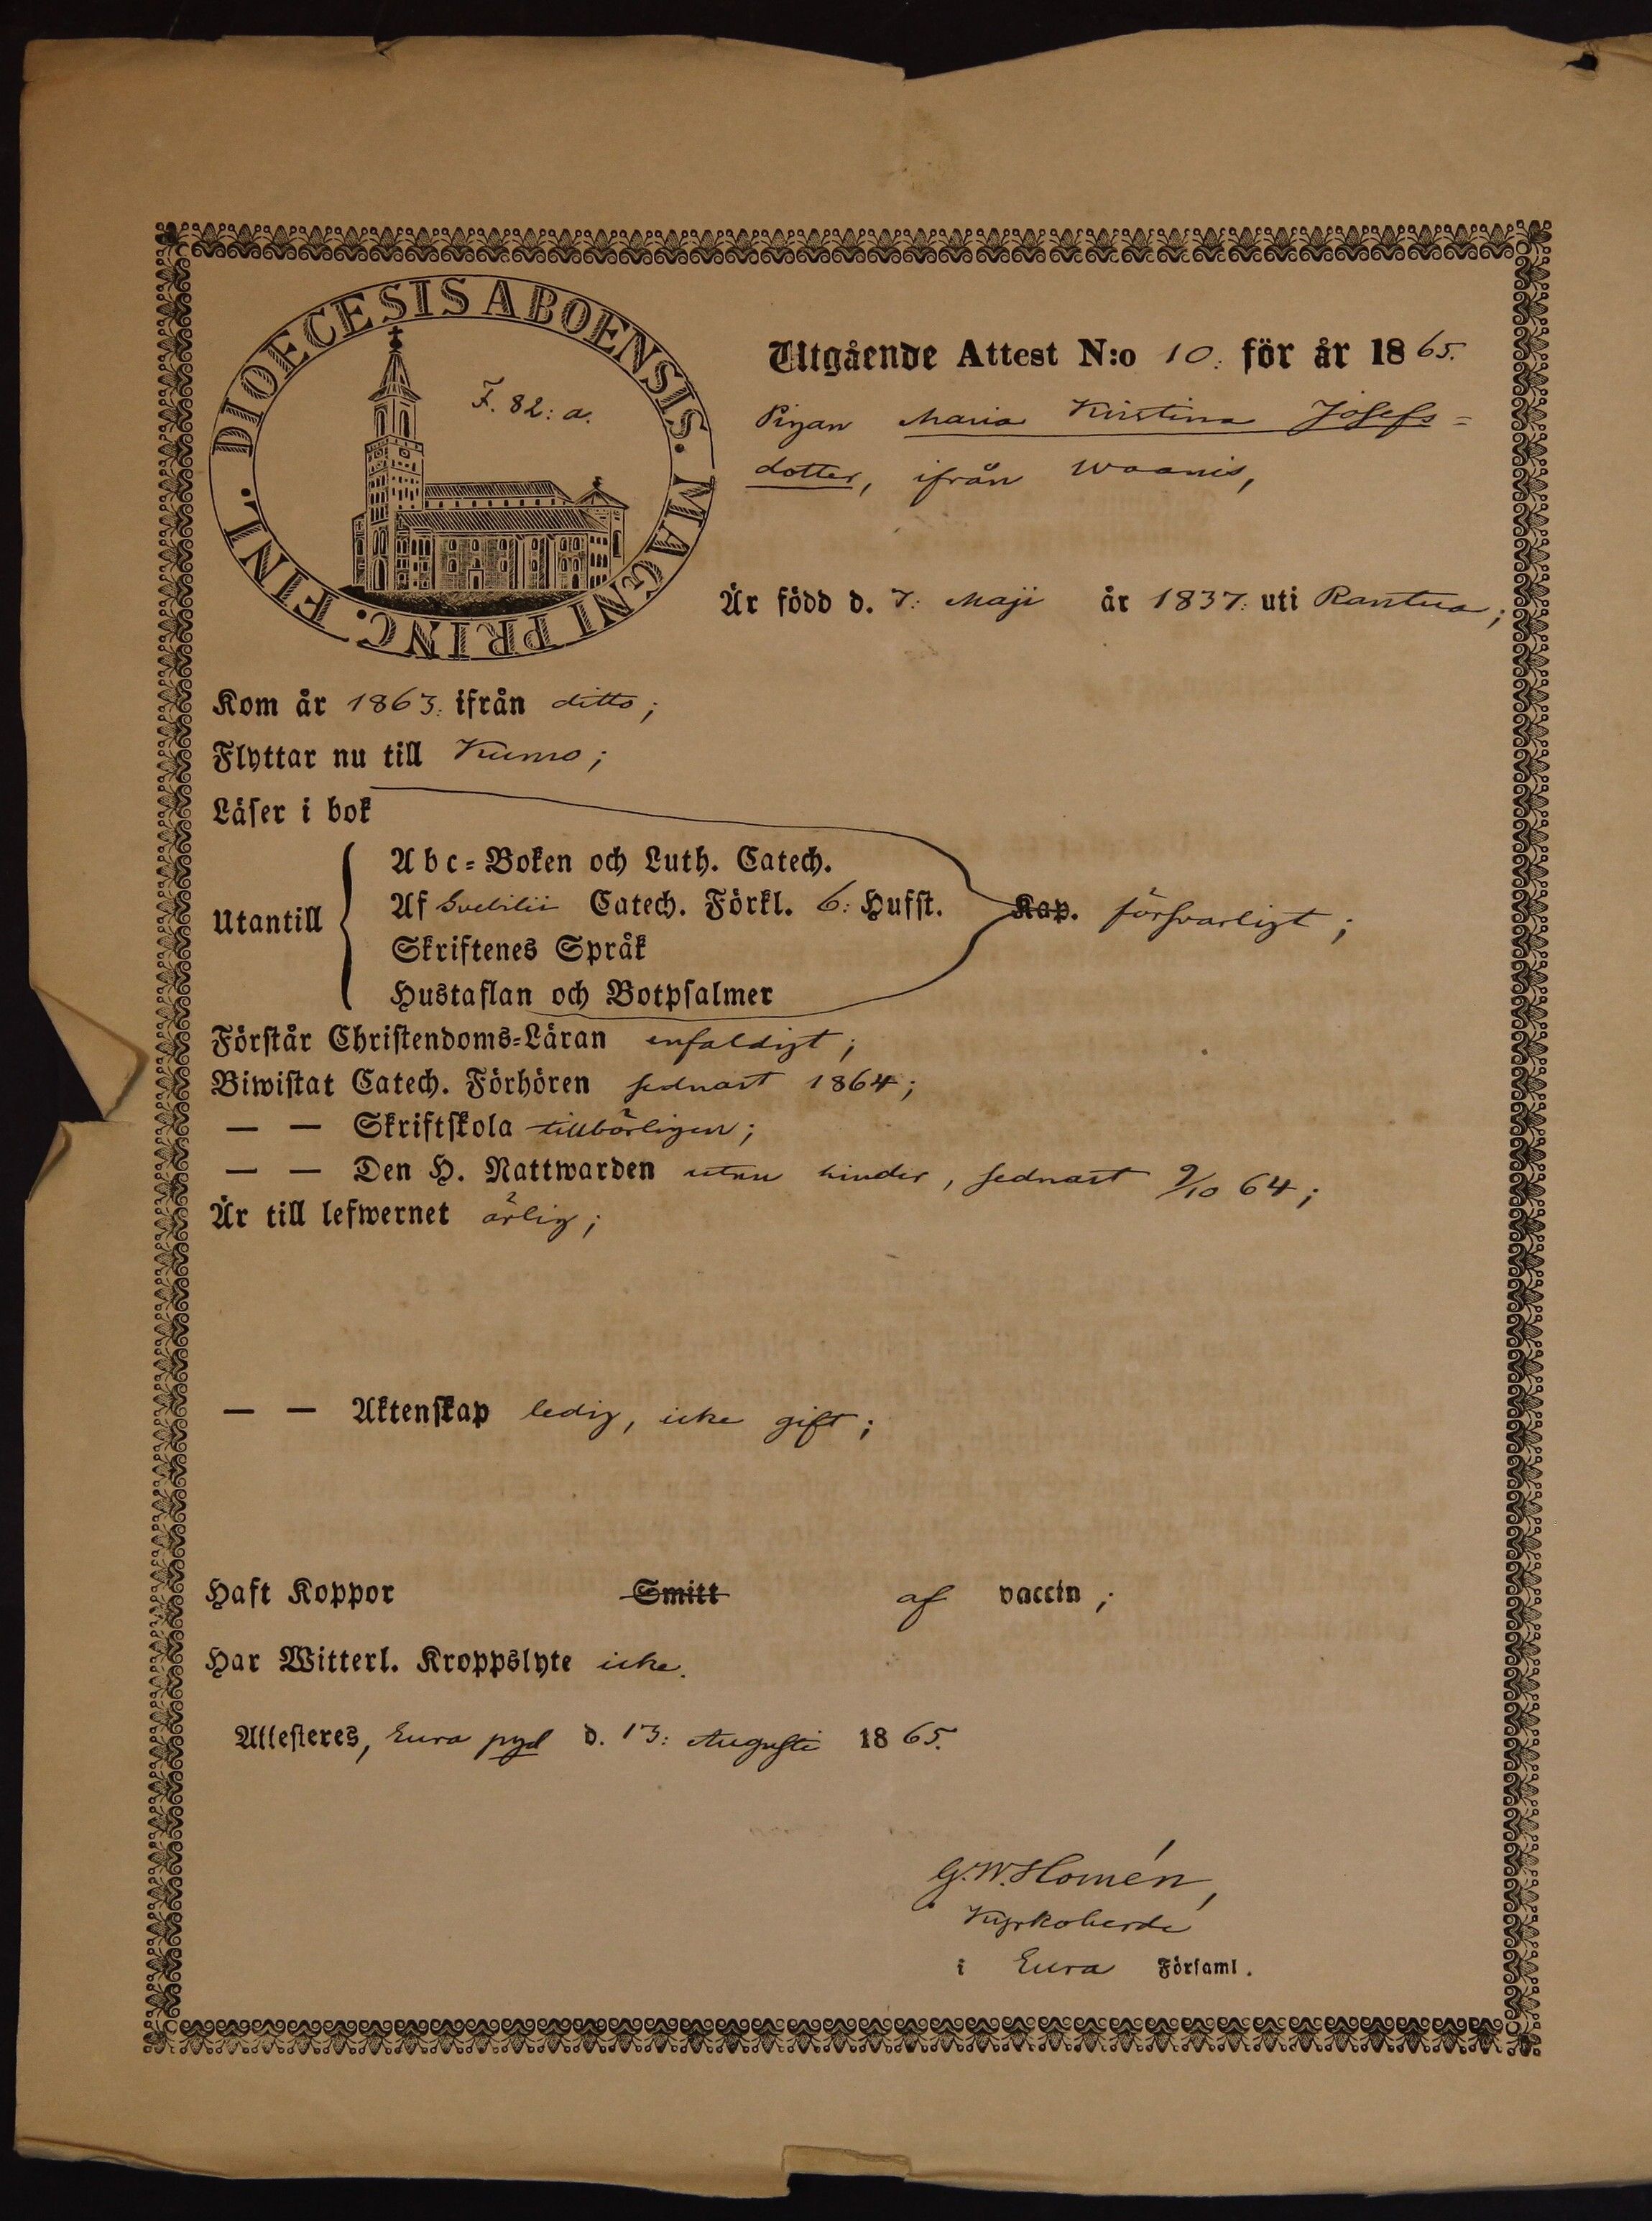 DIOECESIS ABOENSIS. MAGNI PRINC. FINL.
F. 82: a.
Utgående Attest N:o 10. för år 1865.
Pigan Maria Kristina Josefs=
dotter, ifrån Waanis,
Är född d. 7: Maji år 1837: uti Rantua;
Kom år 1863: ifrån ditto;
Flyttar nu till Kumo;
Läser i bok
Utantill
Abc=Boken och Luth. Catech.
Af Svebilii Catech. Förkl. 6: Hufst. Kap. försvarligt;
Skriftenes Språk
Hustaflan och Botpsalmer
Förstår Christendoms=Läran enfaldigt;
Biwistat Catech. Förhören sednast 1864;
— — Skriftskola tillbörligen;
— — Den H. Nattwarden utan hinder, sednast 9/10 64;
Är till lefwernet ärlig;
— — Äktenskap ledig, icke gift;
Haft Koppor Smitt af vaccin;
Har Witterl. Kroppslyte icke.
Attesteres, Eura pgd d. 13: Augusti 1865.
G. W. Homén,
Kyrkoherde
i Eura Församl.